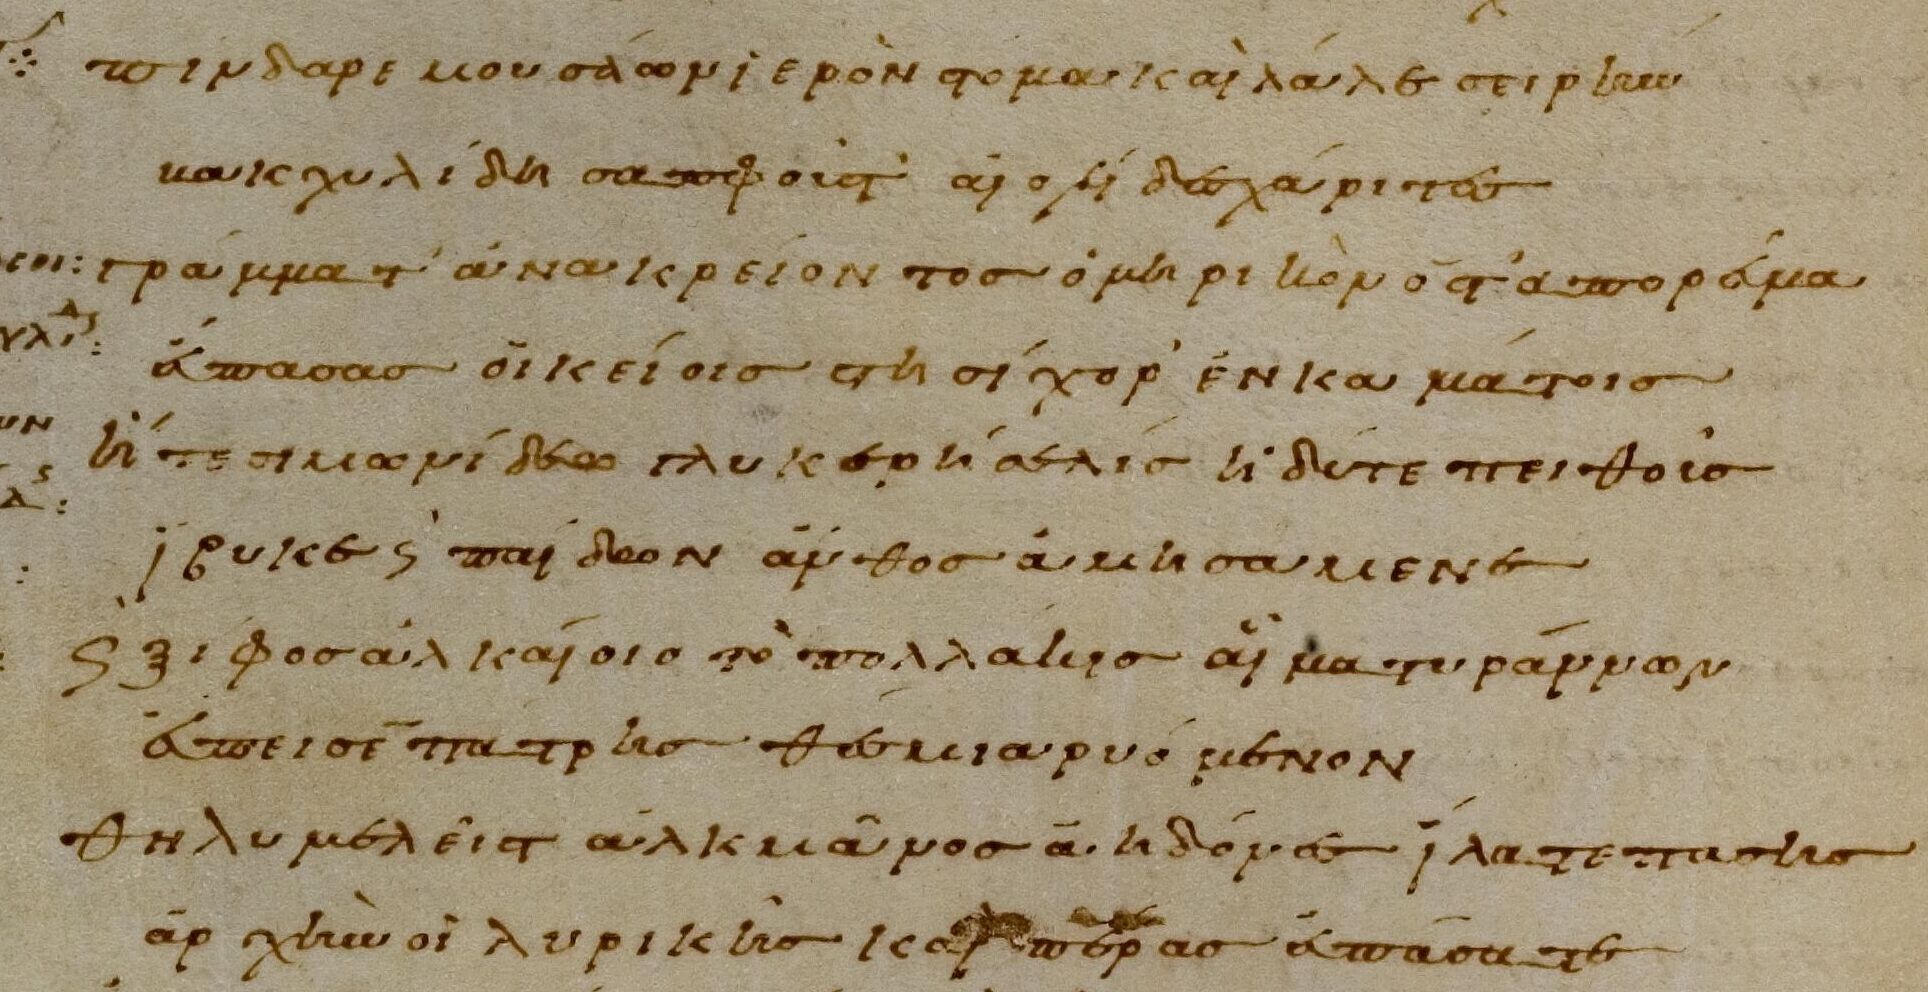 πίνδαρε μουσάων ἱερὸν στόμα καὶ λάλε σειρὴν
βακχυλίδη σαπφοῦς τ' αἰολίδες χάριτες
γράμμα τ' ἀνακρείοντος ὁμηρικὸν ὅς τ' ἀπο ρέμα
ἔσπασας οἰκείοις στησίχορ' ἐν καμάτοις
ἥ τε σιμωνίδεω γλυκερὴ σελὶς ἡδύ τε πειθοῦς
ἴβυκε ϛ παίδων ἄνθος ἀμησάμενε
ϛ ξίφος ἀλκαίοιο τὸ πολλάκις αἷμα τυράννων
ἔσπεισε πάτρης θέσμια ρυόμενον
θηλυμελεῖς τ ἀλκμᾶνος ἀηδόνες ἵλατε πάσης
ἀρχὴν οἳ λυρικῆς καὶ πέρας ἐσπάσατε